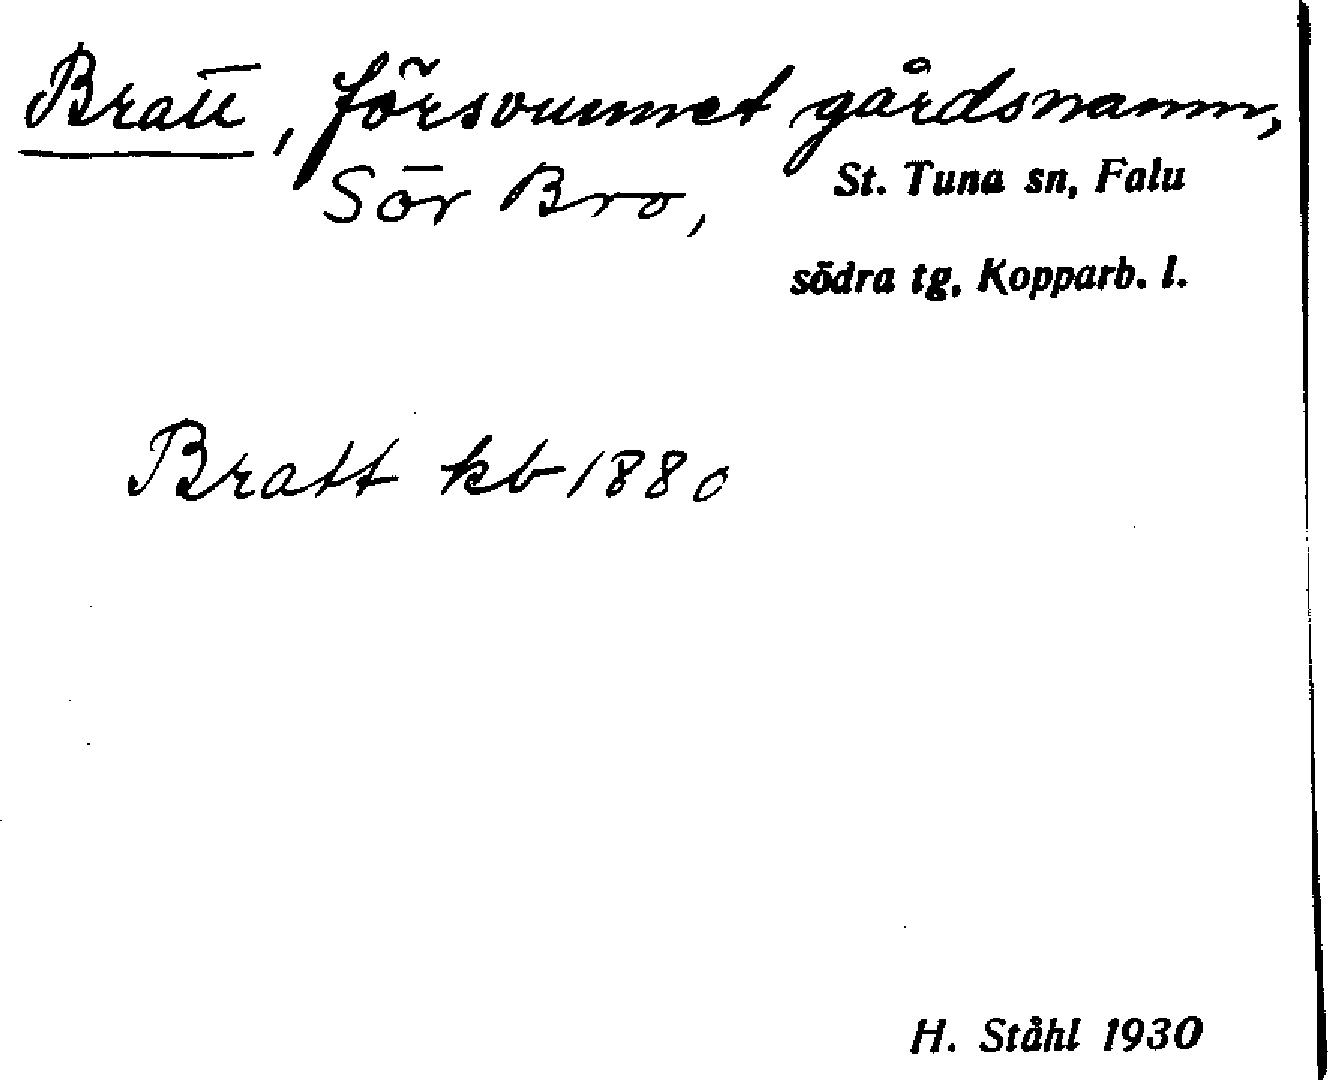 Bratt, försvunnet gårdsnamn,
Sör Bro, St. Tuna sn, Falu
södra tg, Kopparb. l.
Bratt kb 1880
H. Ståhl 1930